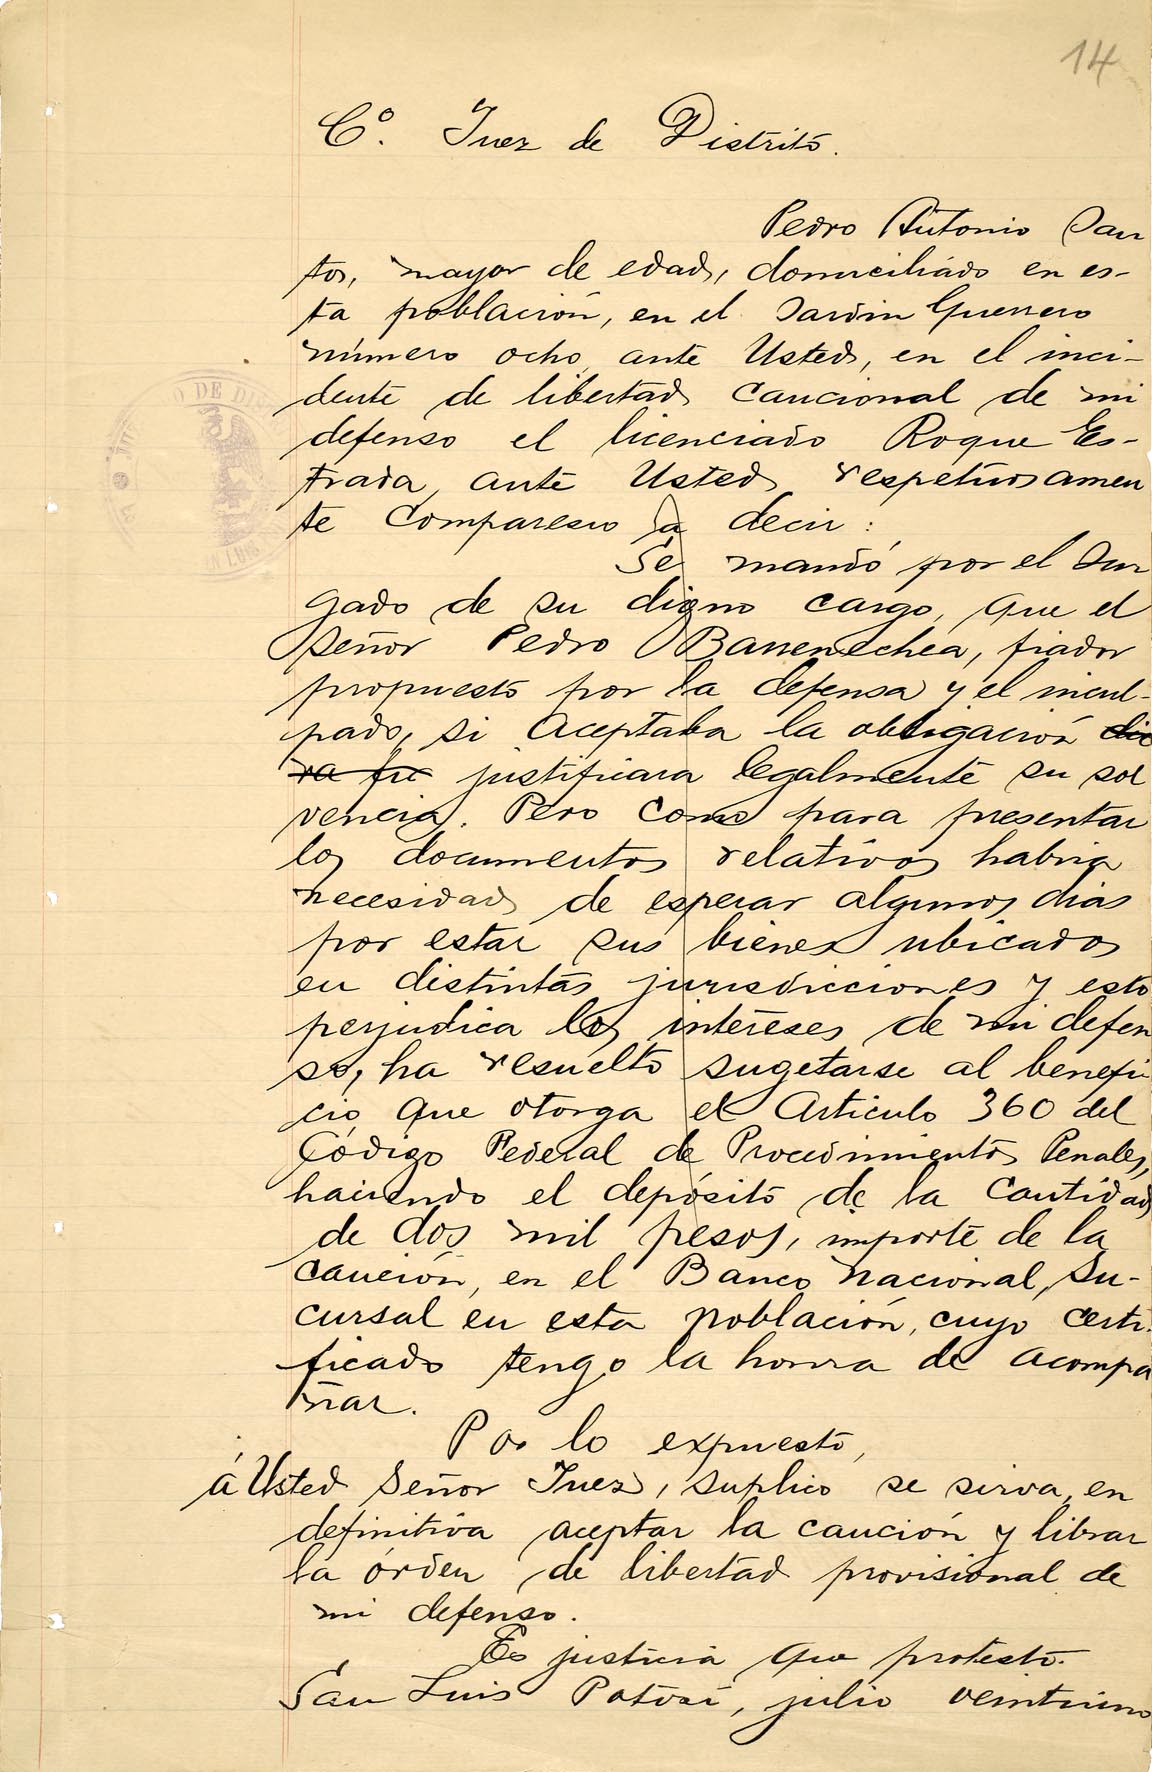 14
Cº. Juez de Distrito.
Pedro Antonio San
tos, mayor de edad, domiciliado en es-
ta población, en el Jardin Guerrero
número ocho, ante Usted, en el inci-
dente de libertad caucional de mi
defenso el licenciado Roque Es-
trada, ante Usted respetuosamen
te comparesco a decir:
Se mandó por el Juz
gado de su digno cargo, que el
señor Pedro Barrenechea, fiador
propuesto por la defensa y el incul-
pado, si aceptaba la obligación
justificara legalmente su sol
vencia. Pero como para presentar
los documentos relativos habria
necesidad de esperar algunos dias
por estar sus bienes ubicados
en distintas jurisdicciones y esto
perjudica los intereses de mi defen
so, ha resuelto sugetarse al benefi
cio que otorga el Articulo 360 del
Código Federal de Procedimientos Penales,
haciendo el depósito de la cantidad
de dos mil pesos, importe de la
caución, en el Banco Nacional, Su-
cursal en esta población, cuyo certi-
ficado tengo la honra de acompa
ñar.
Por lo expuesto,
á Usted Señor Juez, suplico se sirva, en
definitiva aceptar la caución y librar
la órden de libertad provisional de
mi defenso.
Es justicia que protesto.
San Luis Potosí, julio veintiuno